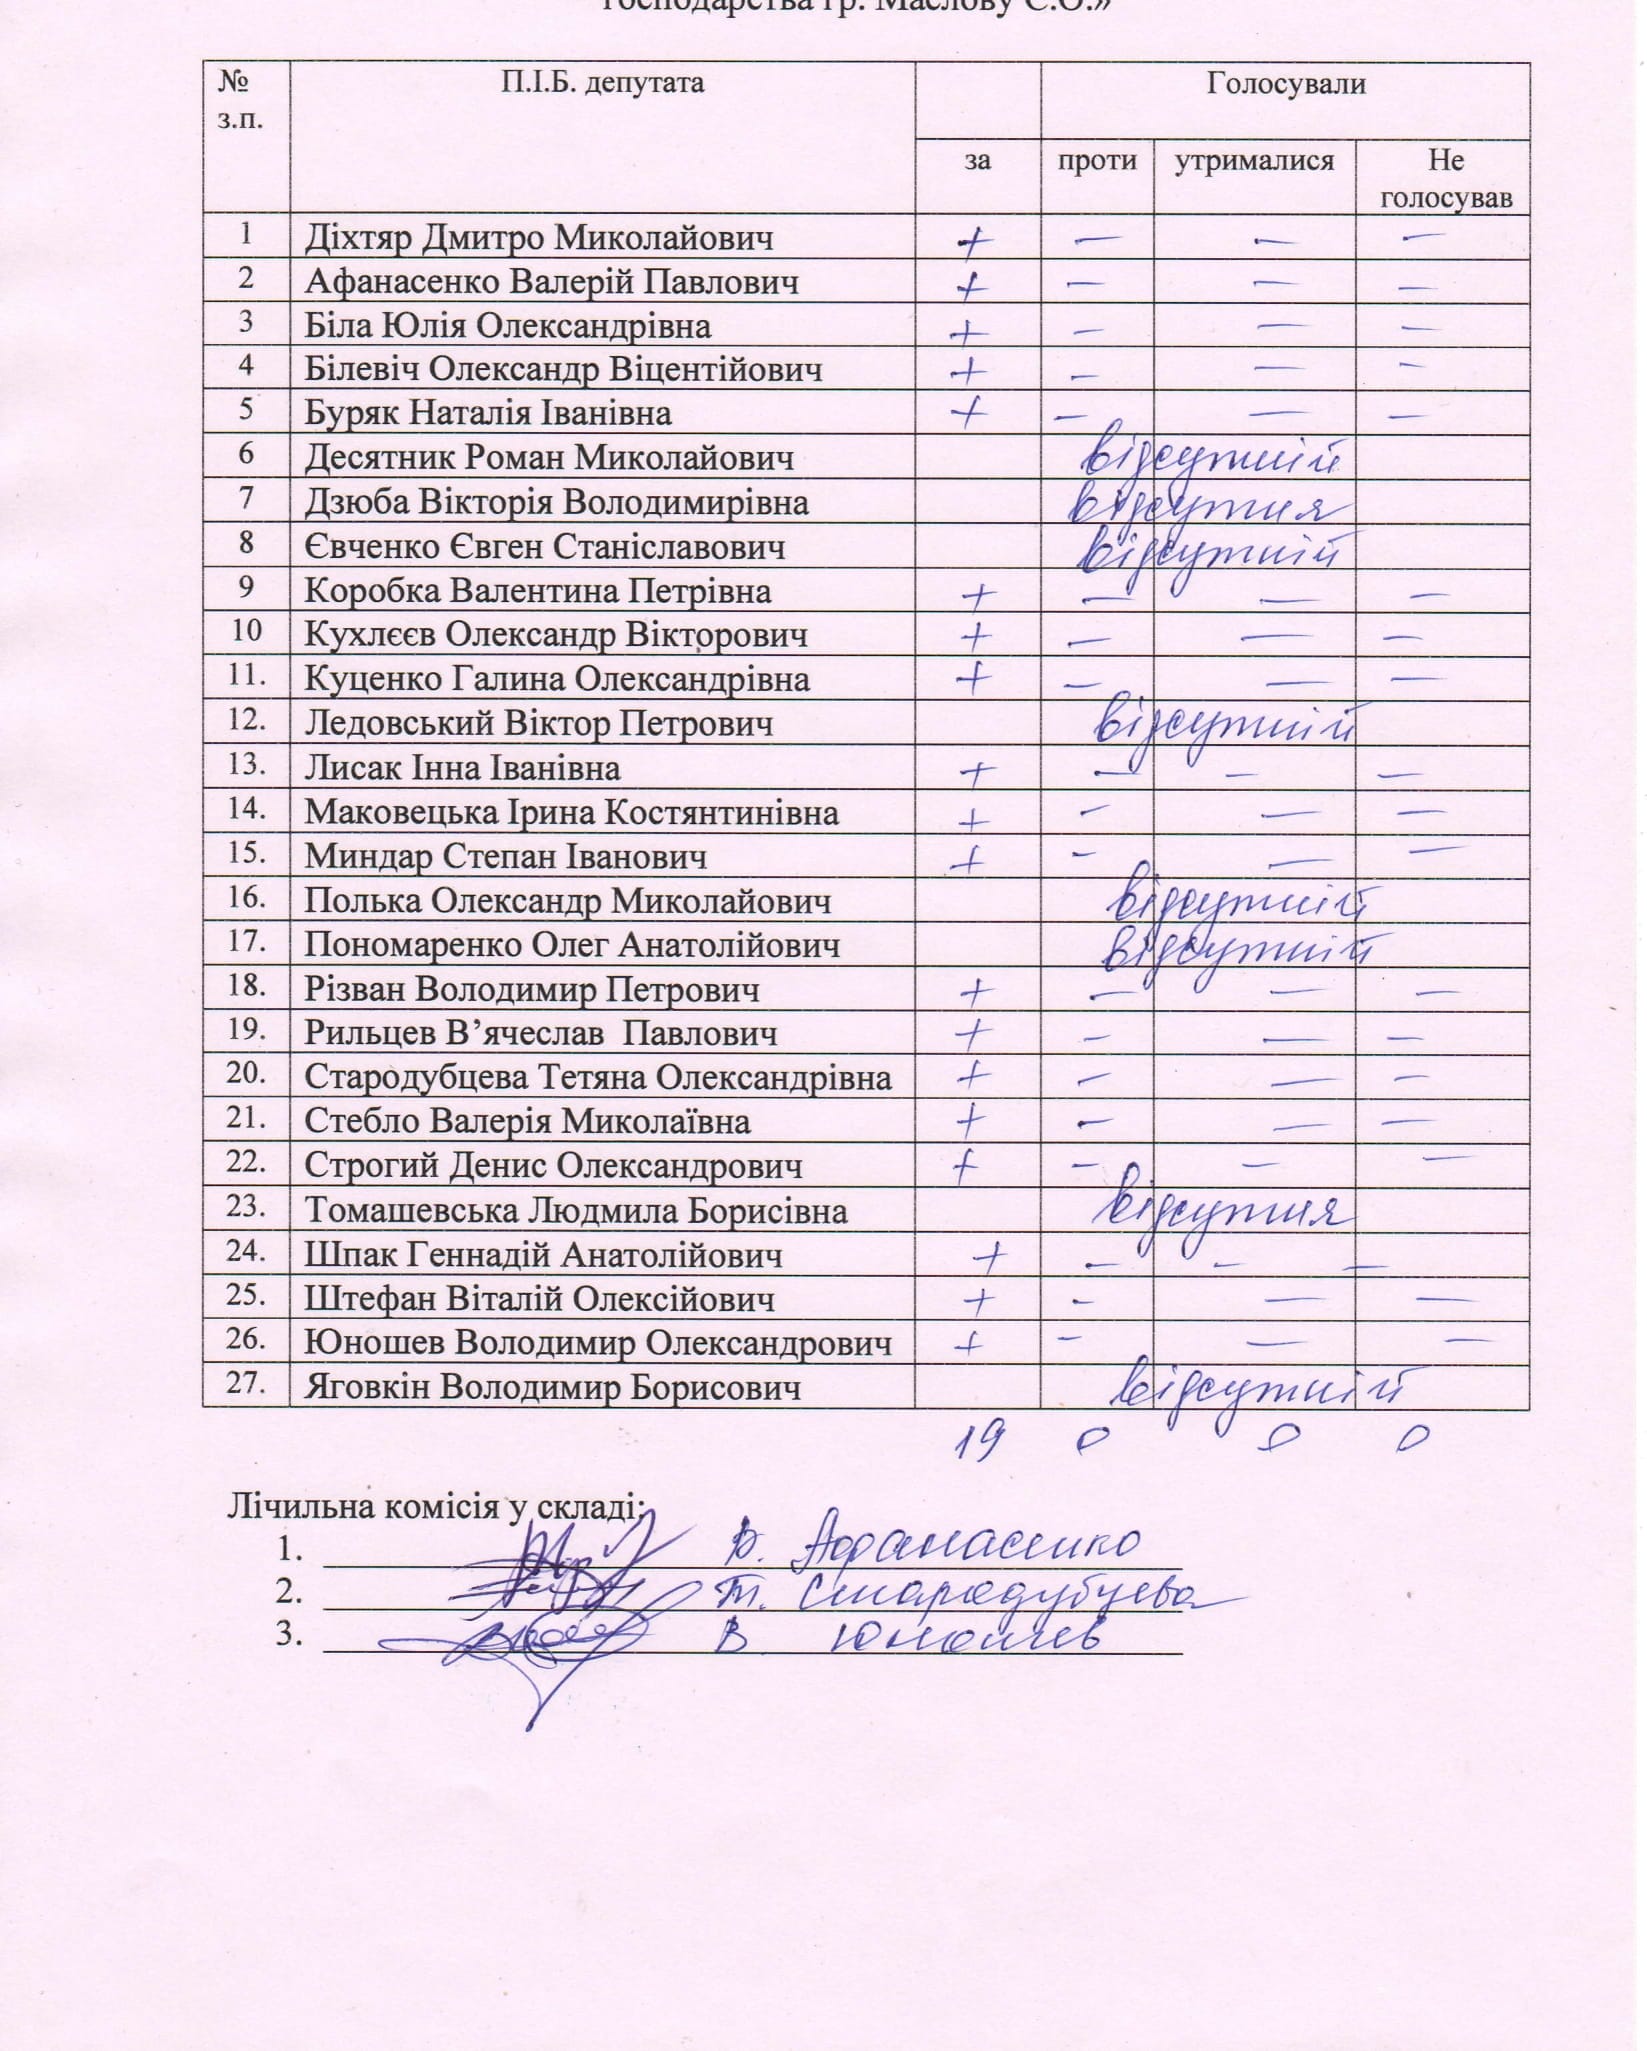 господарства гр. Маслову С.О.»
№ з.п. П.І.Б. депутата Голосували
за проти утрималися Не голосував
1 Діхтяр Дмитро Миколайович + — — —
2 Афанасенко Валерій Павлович + — — —
3 Біла Юлія Олександрівна + — — —
4 Білевіч Олександр Віцентійович + — — —
5 Буряк Наталія Іванівна + — — —
6 Десятник Роман Миколайович відсутній
7 Дзюба Вікторія Володимирівна відсутня
8 Євченко Євген Станіславович відсутній
9 Коробка Валентина Петрівна + — — —
10 Кухлєєв Олександр Вікторович + — — —
11. Куценко Галина Олександрівна + — — —
12. Ледовський Віктор Петрович відсутній
13. Лисак Інна Іванівна + — — —
14. Маковецька Ірина Костянтинівна + — — —
15. Миндар Степан Іванович + — — —
16. Полька Олександр Миколайович відсутній
17. Пономаренко Олег Анатолійович відсутній
18. Різван Володимир Петрович + — — —
19. Рильцев В’ячеслав Павлович + — — —
20. Стародубцева Тетяна Олександрівна + — — —
21. Стебло Валерія Миколаївна + — — —
22. Строгий Денис Олександрович + — — —
23. Томашевська Людмила Борисівна відсутня
24. Шпак Геннадій Анатолійович + — — —
25. Штефан Віталій Олексійович + — — —
26. Юношев Володимир Олександрович + — — —
27. Яговкін Володимир Борисович відсутній
19 0 0 0
Лічильна комісія у складі:
1. В. Афанасенко
2. Т. Стародубцева
3. В Юношев